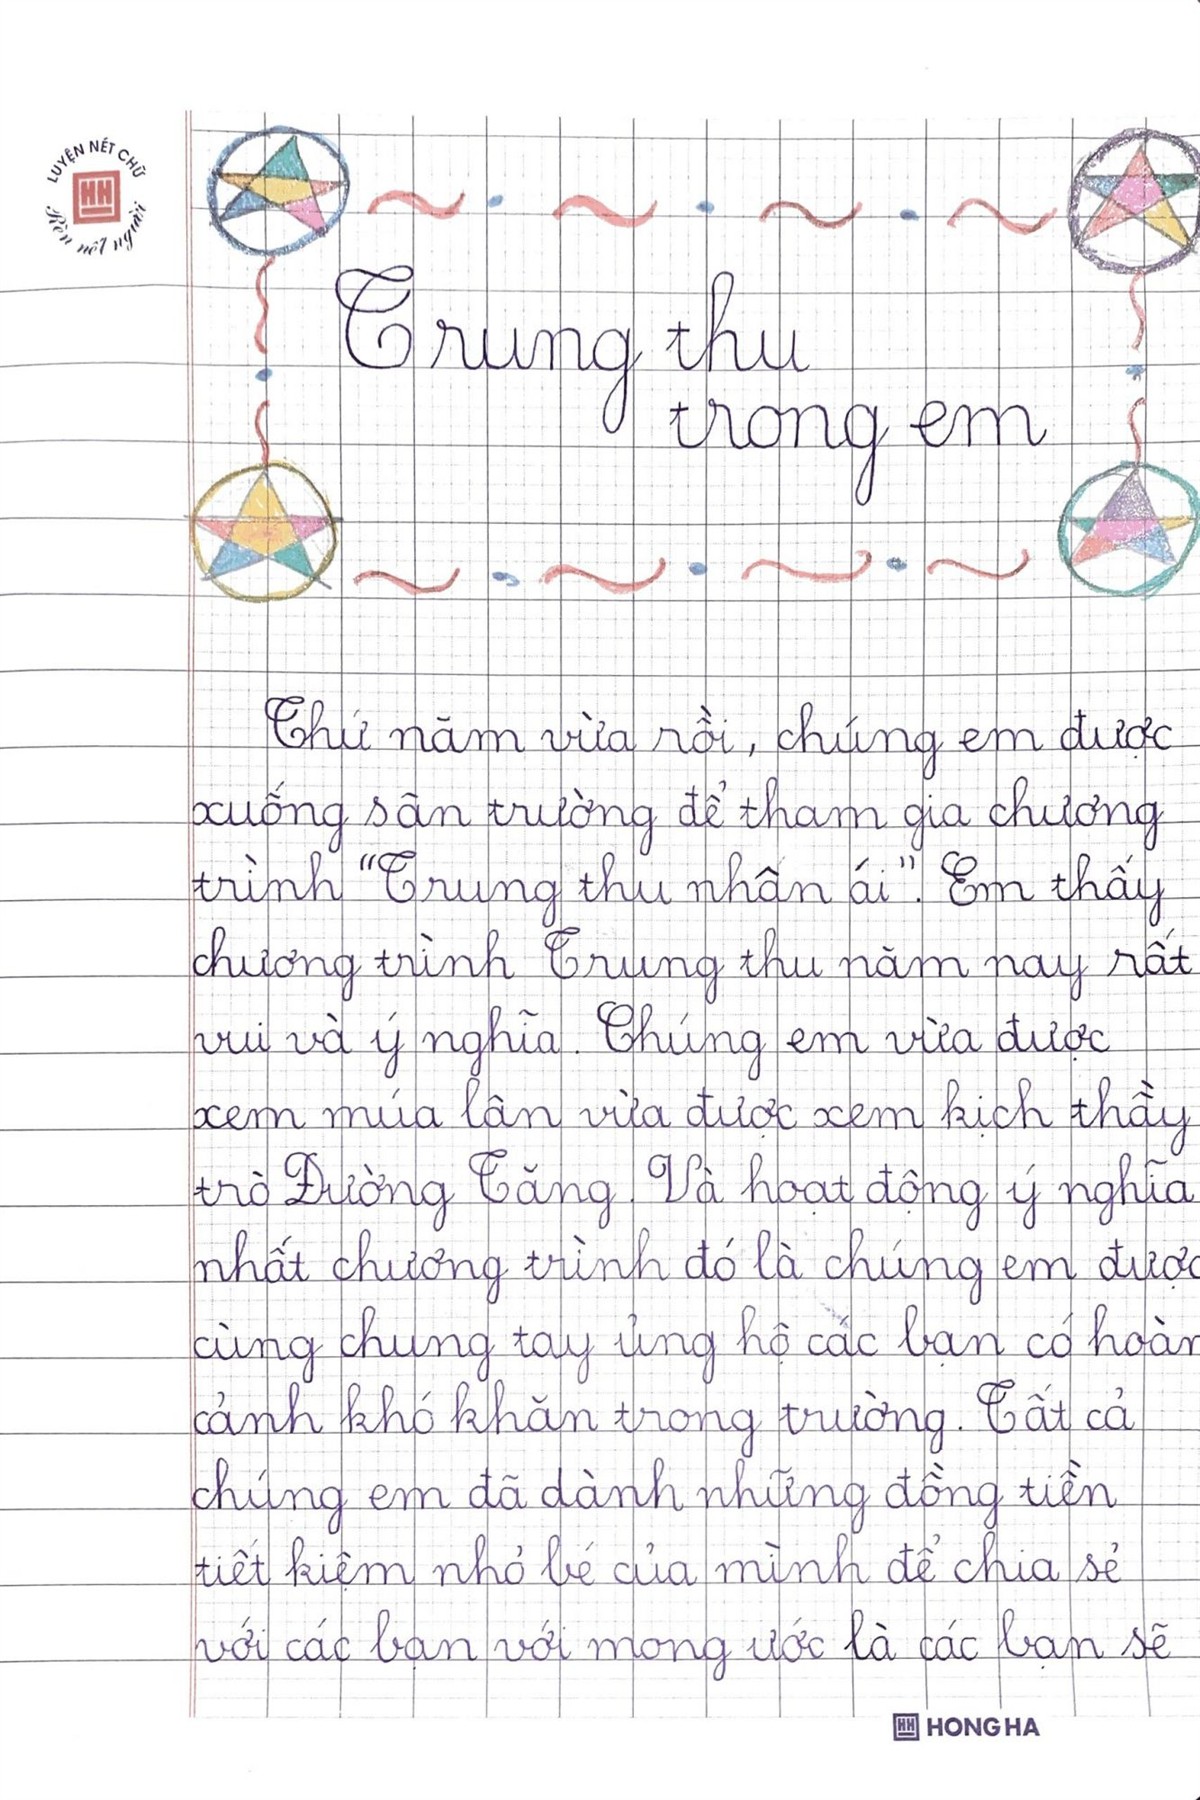 LUYỆN NÉT CHỮ
HH
Rèn nết người
Trung thu
trong em
Thứ năm vừa rồi, chúng em được
xuống sân trường để tham gia chương
trình "Trung thu nhân ái". Em thấy
chương trình Trung thu năm nay rất
vui và ý nghĩa. Chúng em vừa được
xem múa lân vừa được xem kịch thầy
trò Đường Tăng. Và hoạt động ý nghĩa
nhất chương trình đó là chúng em được
cùng chung tay ủng hộ các bạn có hoàn
cảnh khó khăn trong trường. Tất cả
chúng em đã dành những đồng tiền
tiết kiệm nhỏ bé của mình để chia sẻ
với các bạn với mong ước là các bạn sẽ
HH HONG HA